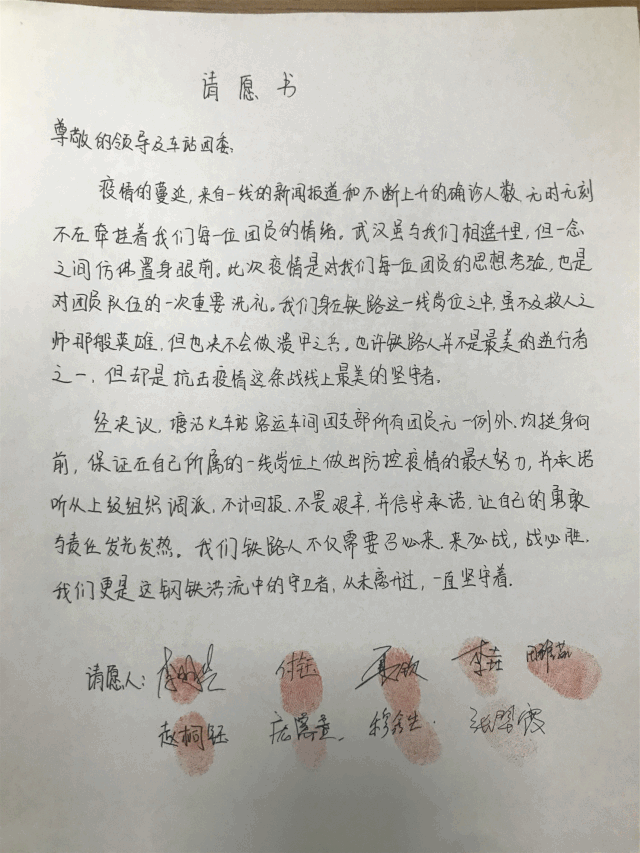 请愿书
尊敬的领导及车站团委:
疫情的蔓延,来自一线的新闻报道和不断上升的确诊人数,无时无刻
不在牵挂着我们每一位团员的情绪。武汉虽与我们相遥千里,但一念
之间仿佛置身眼前。此次疫情是对我们每一位团员的思想考验,也是
对团员队伍的一次重要洗礼。我们身在铁路这一线岗位之中,虽不及救人之
师那般英雄,但也决不会做溃甲之兵。也许铁路人并不是最美的逆行者
之一,但却是抗击疫情这条战线上最美的坚守者。
经决议,塘沽火车站客运车间团支部所有团员无一例外、均挺身向
前,保证在自己所属的一线岗位上做出防控疫情的最大努力,并承诺
听从上级组织调派、不计回报、不畏艰辛,并信守承诺,让自己的勇敢
与责任发光发热。我们铁路人不仅需要召必来、来必战,战必胜。
我们更是这钢铁洪流中的守卫者,从未离开过,一直坚守着.
请愿人: 付钰 聂钦 李垚
赵桐钰